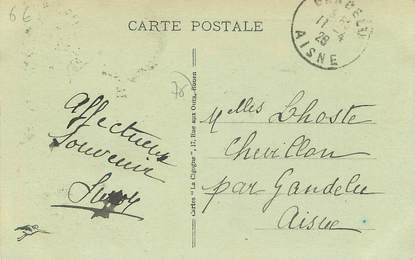 66
CARTE POSTALE
GANDELU
11 - 4
26
AISNE
78
Affectueux
Souvenir
Cartes "La Cigogne", 17, Rue aux Ours, Rouen
Melles Lhoste
Chevillon
par Gandelu
Aisne